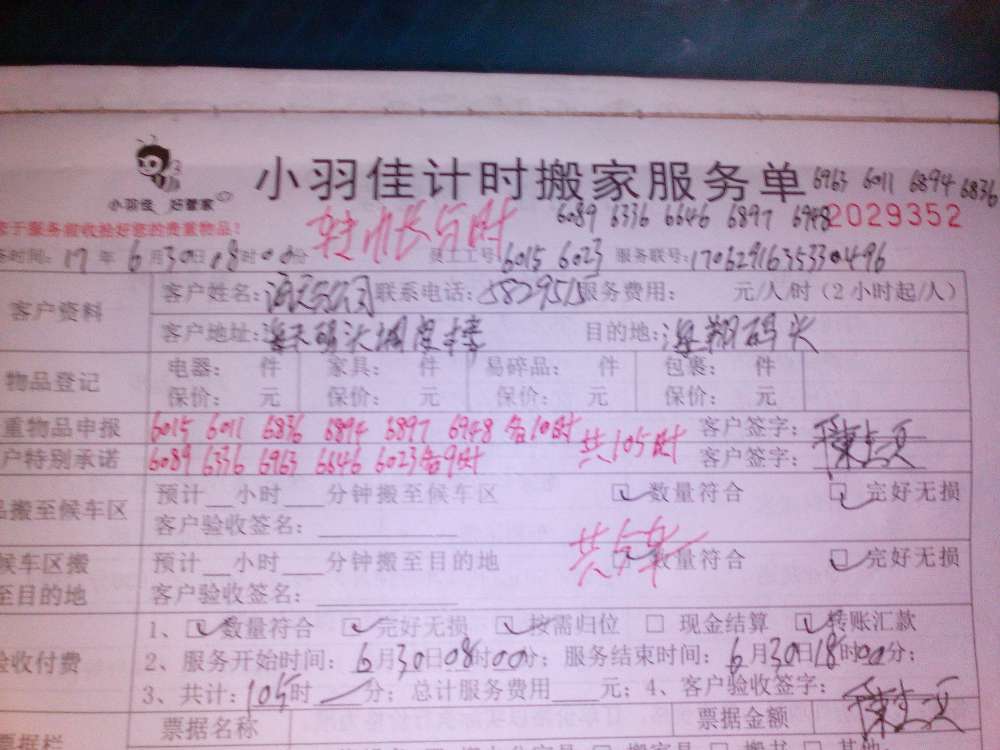 小羽佳 好管家
小羽佳计时搬家服务单 6963 6011 6894 6836
6089 6336 6646 6897 6948 2029352
于服务前收拾好您的贵重物品！
时间：17年6月30日08时00分 员工工号：6015 6023 服务联号：170629163533 0496
客户资料 客户姓名： 联系电话：5829515 服务费用： 元/人/时（2小时起/人）
客户地址：海天码头 目的地：海翔码头
物品登记 电器： 件 家具： 件 易碎品： 件 包裹： 件
保价： 元 保价： 元 保价： 元 保价： 元
重物品申报 6015 6011 6836 6894 6897 6948 各10时 共105时 客户签字：
户特别承诺 6089 6336 6963 6646 6023 各9时 客户签字：
品搬至候车区 预计__小时___分钟搬至候车区 数量符合 完好无损
客户验收签名：
候车区搬至目的地 预计__小时___分钟搬至目的地 数量符合 完好无损
客户验收签名：
验收付费 1、数量符合 完好无损 按需归位 现金结算 转账汇款
2、服务开始时间：6月30日08时00分；服务结束时间：6月30日18时00分；
3、共计：105时 分；总计服务费用 元；4、客户验收签字：
票据栏 票据名称 票据金额